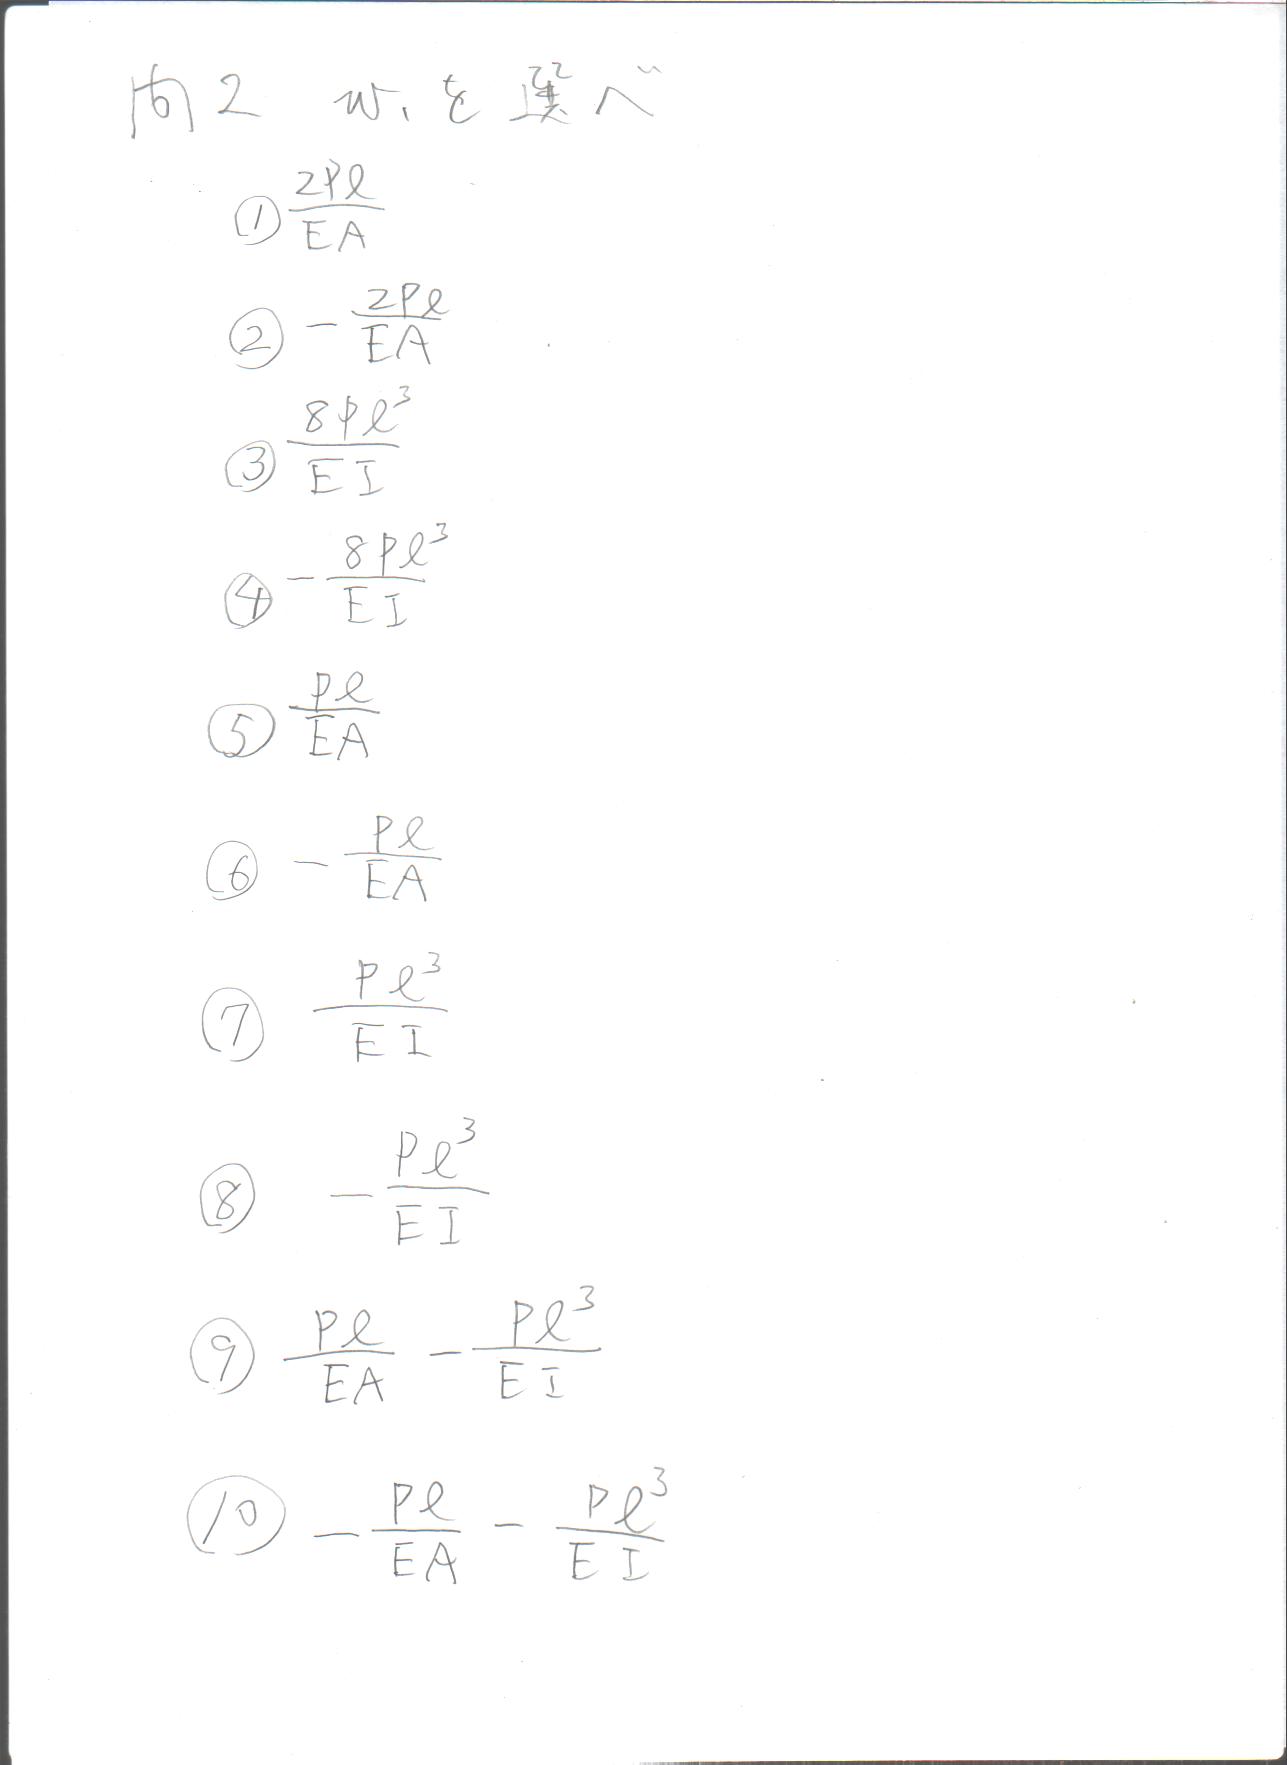 問2 w₁を選べ
① 2Pℓ/EA
② - 2Pℓ/EA
③ 8Pℓ³/EI
④ - 8Pℓ³/EI
⑤ Pℓ/EA
⑥ - Pℓ/EA
⑦ Pℓ³/EI
⑧ - Pℓ³/EI
⑨ Pℓ/EA - Pℓ³/EI
⑩ - Pℓ/EA - Pℓ³/EI